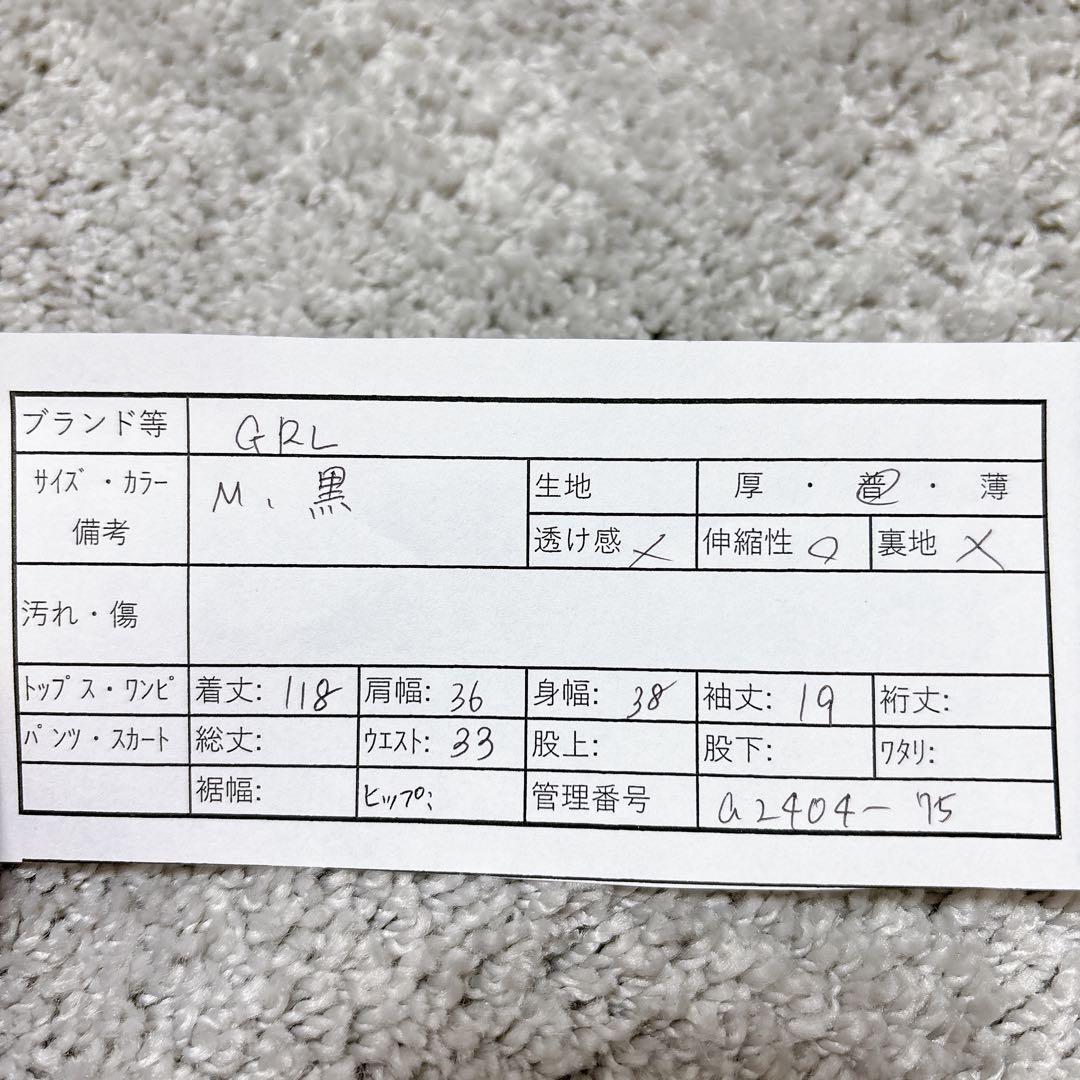 ブランド等 GRL
サイズ・カラー M、黒 生地 厚・普・薄
備考 透け感 × 伸縮性 ○ 裏地 ×
汚れ・傷
トップス・ワンピ 着丈: 118 肩幅: 36 身幅: 38 袖丈: 19 裄丈:
パンツ・スカート 総丈: ウエスト: 33 股上: 股下: ワタリ:
裾幅: ヒップ: 管理番号 a2404-75